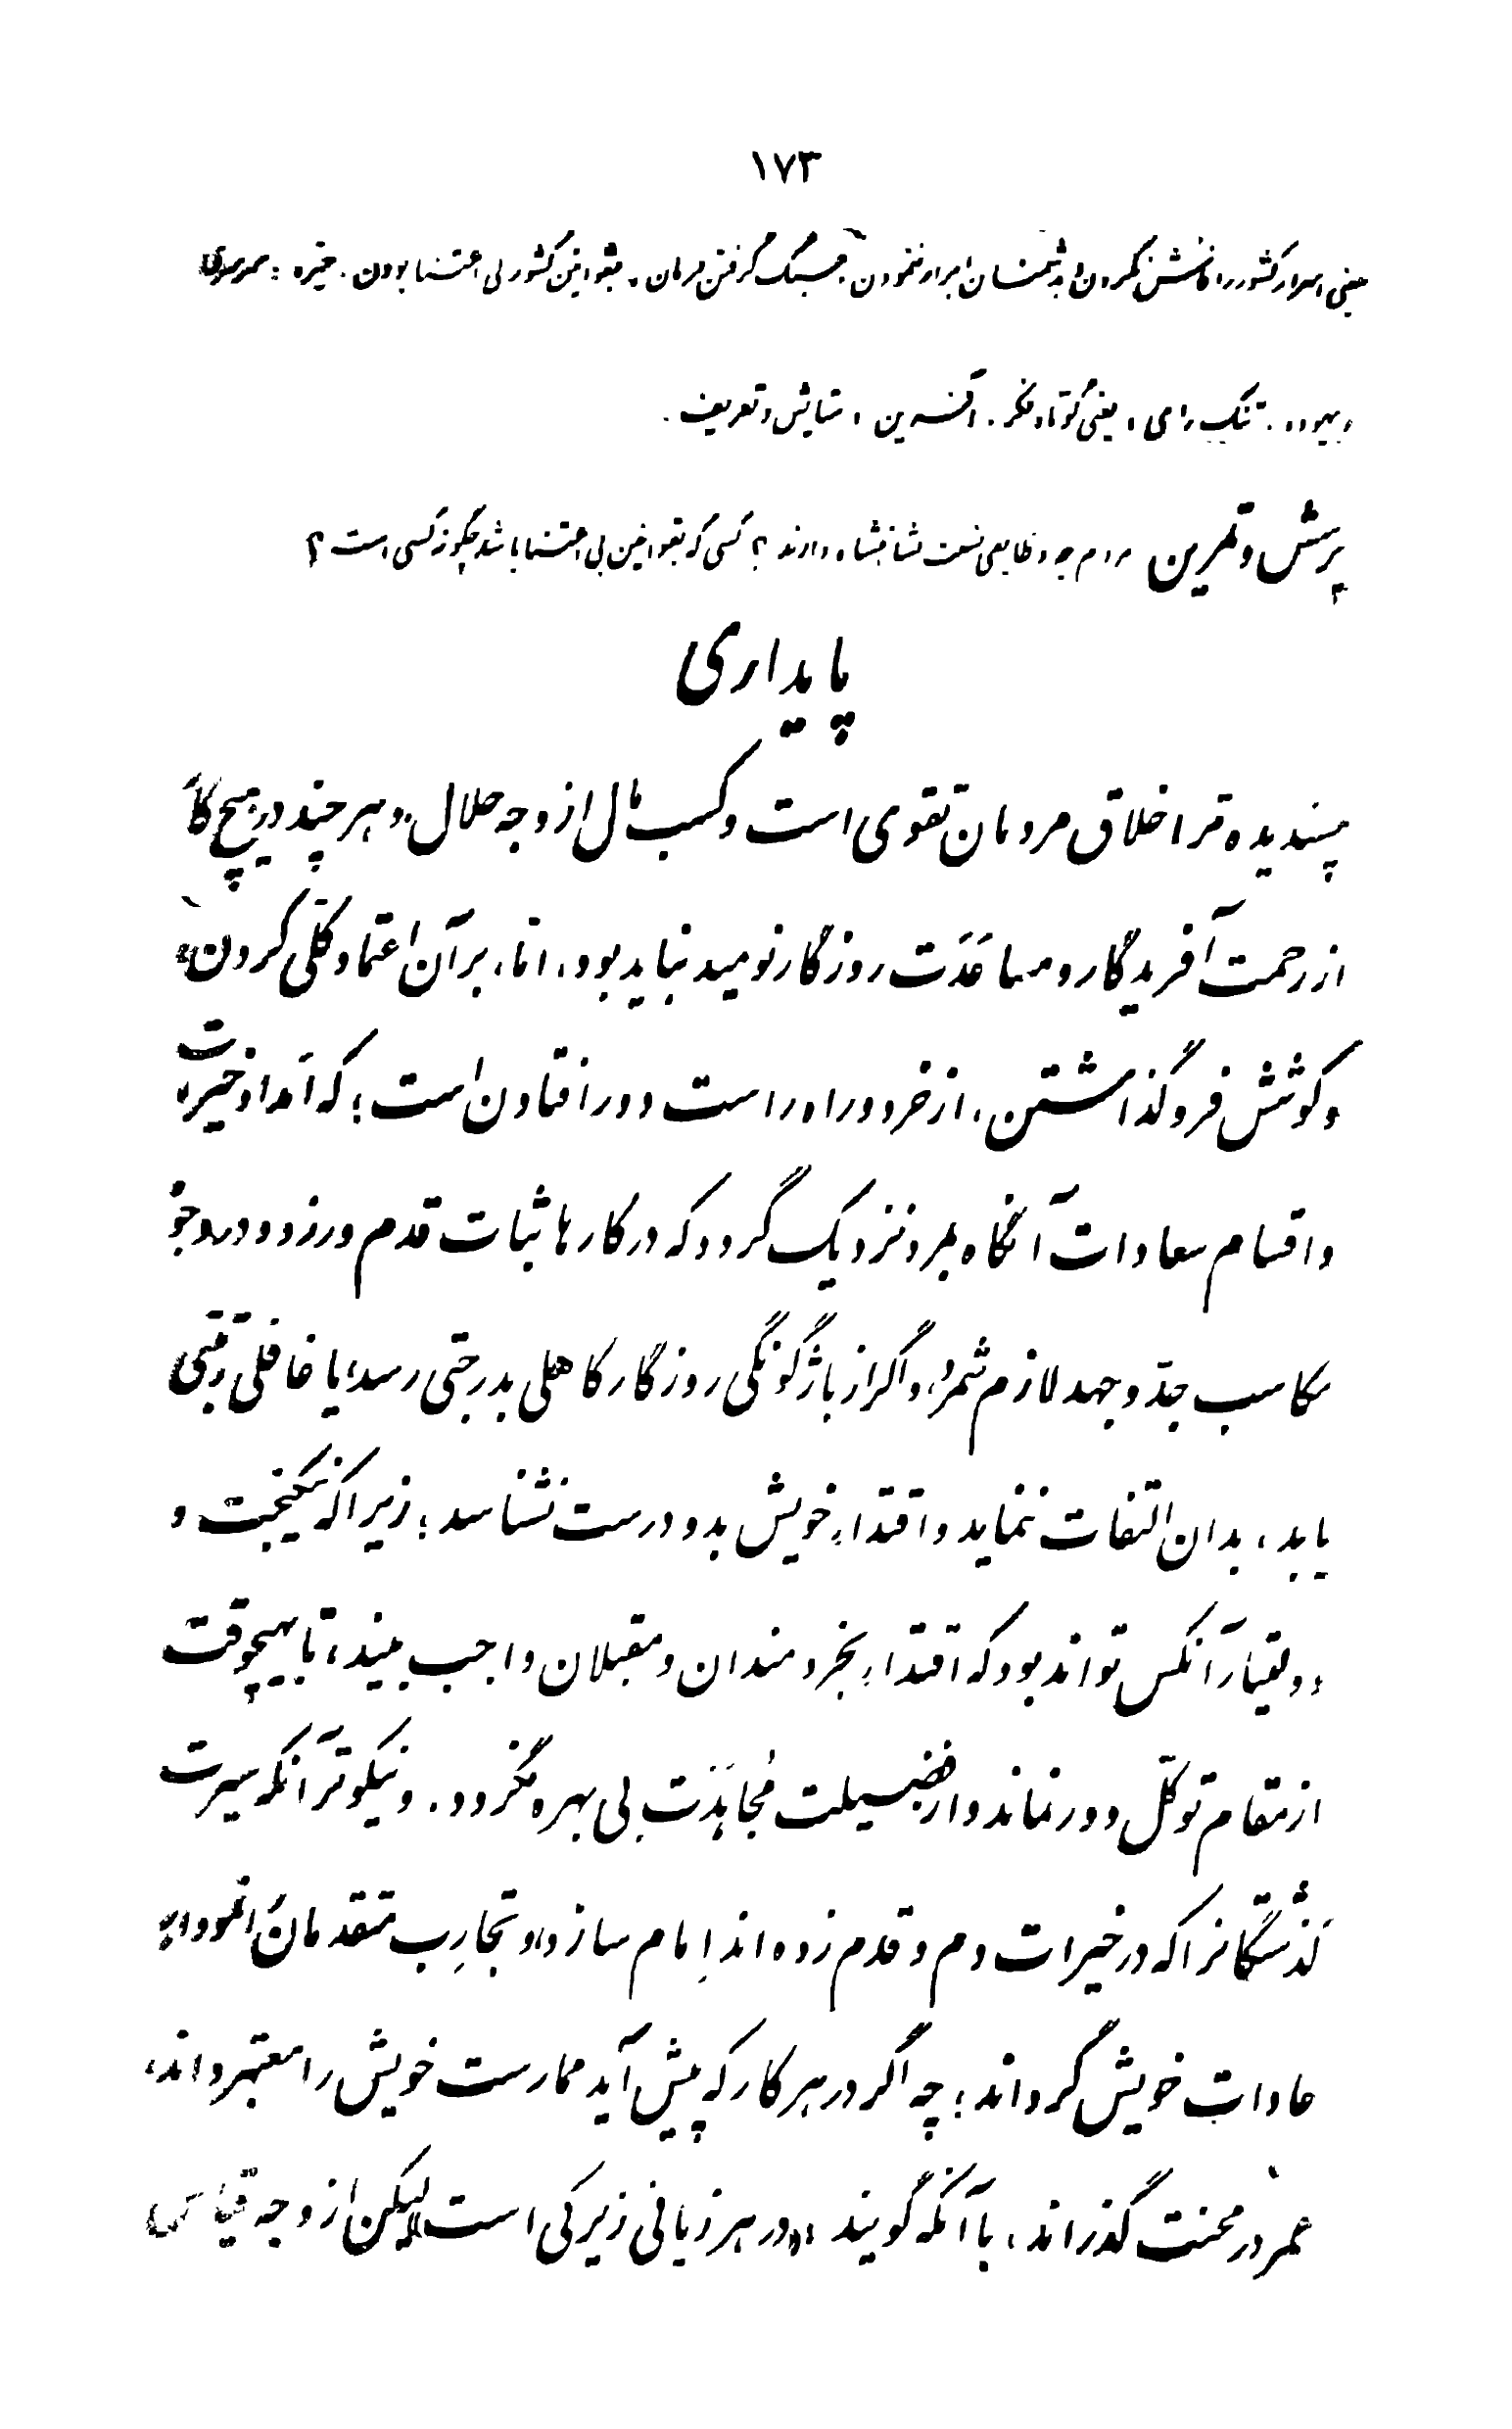 ۱۷۳
یعنی اسرار کشور را فاش نکردن و به دشمنان ابراز ننمودن. سبک گرفتن فرمان، بقوانین کشور بی اعتنا بودن. خیره:
و بیهوده. تنک رای، یعنی کوتاه فکر. آفرین، ستایش و تعریف.
پرسش و تمرین مردم چه وظایفی نسبت شاهنشاه دارند؟ کسی که بقوانین بی اعتنا باشد چگونه کسی است؟
پایداری
پسندیده تر اخلاق مردمان تقوی است و کسب مال از وجه حلال. و هر چند در هیچ کار
از رحمت آفریدگار و مساعَدَت روزگار نومید نباید بود، امّا، بر آن اعتماد کلّی کردن
و کوشش فرو گذاشتن، از خرد و راه راست دور افتادن است؛ که امداد خیرات
و اقسام سعادات آنگاه بمرد نزدیک گردد که در کارها ثبات قدم ورزد و در وجوهٔ
مکاسب جدّ و جهد لازم شمرد، و اگر از باژگونگی روزگار کاهلی بدرجتی رسد، یا غافلی رتبتی
یابد، بدان التفات ننماید و اقتداء خویش بدو درست نشناسد؛ زیرا که نیکبخت و
دولتیار آنکس تواند بود که اقتداء بخردمندان و مقبلان واجب بیند، تا بهیچوقت
از مقام توکّل دور نماند و از فضیلت مُجاهِدَت بی بهره نگردد. و نیکوتر آنکه سیرت
گذشتگانرا که در خیرات دم و قدم زده اند اِمام سازد، و تجارِب متقدمان را نمودار
عادات خویش گرداند؛ چه اگر در هر کار که پیش آید ممارست خویش را معتبر داند،
عمر در محنت گذراند، با آنکه گویند «در هر زیانی زیرکی است» لیکن از وجه قیاس